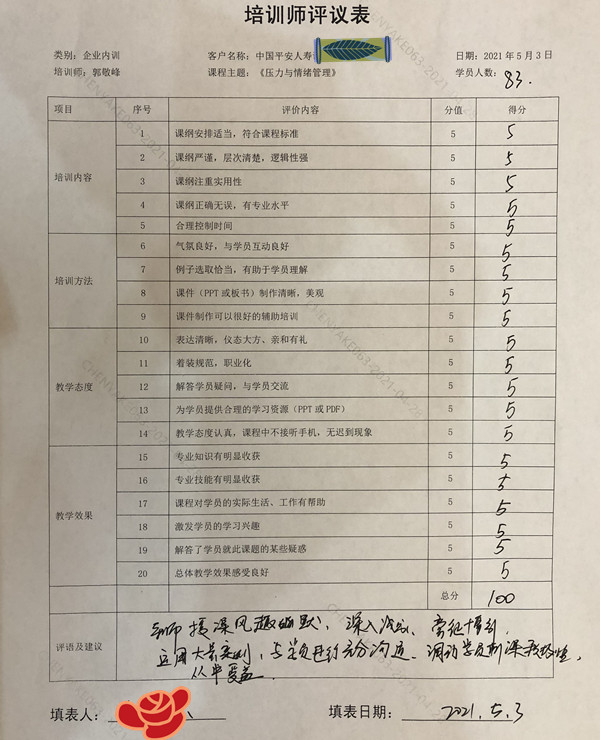 培训师评议表
类别：企业内训 客户名称：中国平安人寿 日期：2021年5月3日
培训师：郭敬峰 课程主题：《压力与情绪管理》 学员人数：83.
项目 序号 评价内容 分值 得分
培训内容
1 课纲安排适当，符合课程标准 5 5
2 课纲严谨，层次清楚，逻辑性强 5 5
3 课纲注重实用性 5 5
4 课纲正确无误，有专业水平 5 5
5 合理控制时间 5 5
培训方法
6 气氛良好，与学员互动良好 5 5
7 例子选取恰当，有助于学员理解 5 5
8 课件（PPT或板书）制作清晰，美观 5 5
9 课件制作可以很好的辅助培训 5 5
教学态度
10 表达清晰，仪态大方、亲和有礼 5 5
11 着装规范，职业化 5 5
12 解答学员疑问，与学员交流 5 5
13 为学员提供合理的学习资源（PPT或PDF） 5 5
14 教学态度认真，课程中不接听手机，无迟到现象 5 5
教学效果
15 专业知识有明显收获 5 5
16 专业技能有明显收获 5 5
17 课程对学员的实际生活、工作有帮助 5 5
18 激发学员的学习兴趣 5 5
19 解答了学员就此课题的某些疑惑 5 5
20 总体教学效果感受良好 5 5
总分 100
评语及建议
授课风趣幽默，深入浅出，
运用大量案例，与学员进行充分沟通，调动学员听课积极性，
填表人： 填表日期：2021.5.3